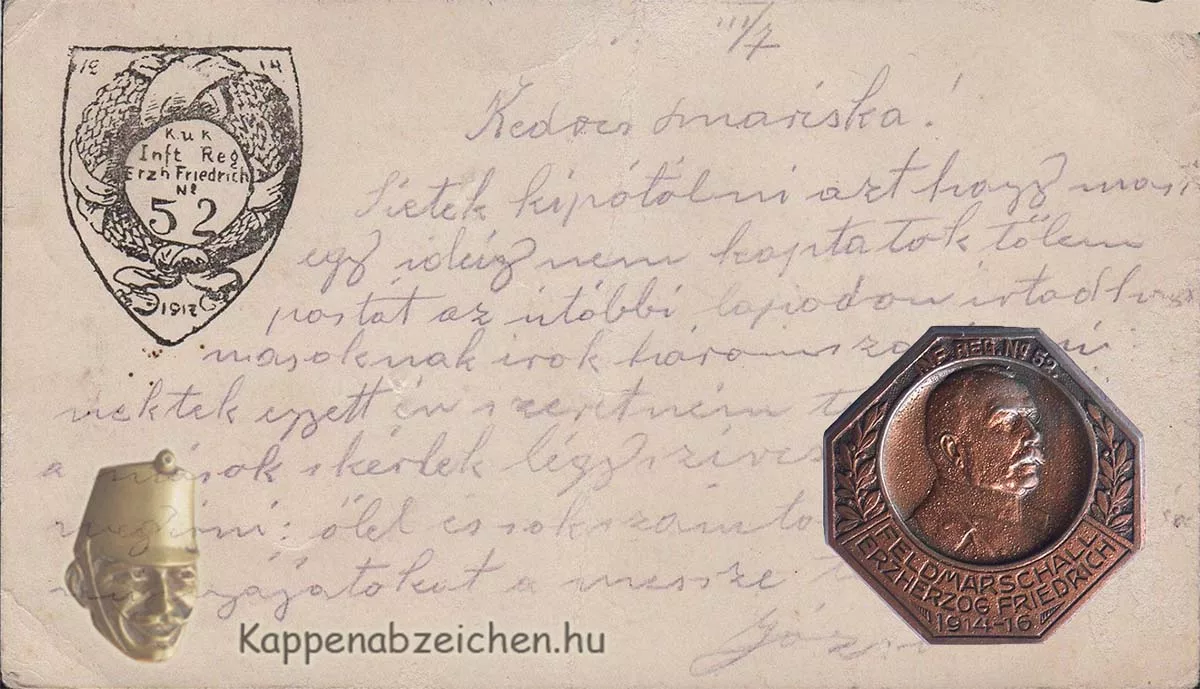 III/7
19 14
K.u K
Inft Reg
Erzh Friedrich
No
52
1917
Kedves Mariska!
Sietek kipótolni azt hogy most
egy ideig nem kaptatok tőlem
postát az utóbbi lapodon irtad hogy
másoknak irok háromszor
nektek egyett én szeretném
a mások kérlek légy szives
megirni: ölel és sokszám
a messze
INF. REG. No 52.
FELDMARSCHALL
ERZHERZOG FRIEDRICH
1914-16
Kappenabzeichen.hu